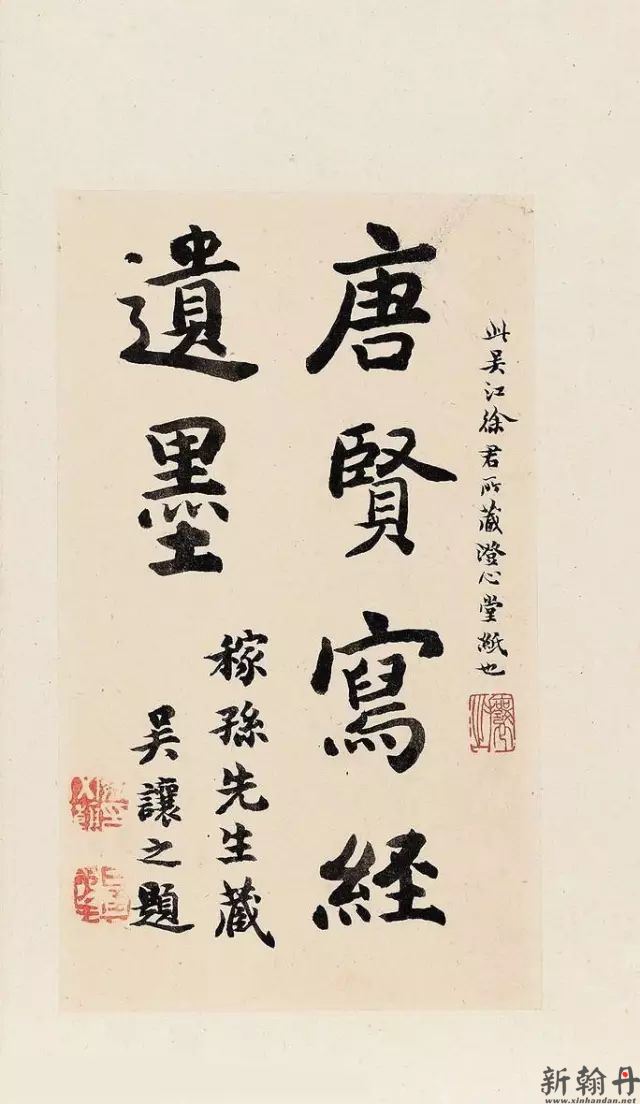 此吳江徐君所藏澄心堂紙也
唐賢寫経
遺墨
稼孫先生藏
吳讓之題
新翰丹
www.xinhandan.net